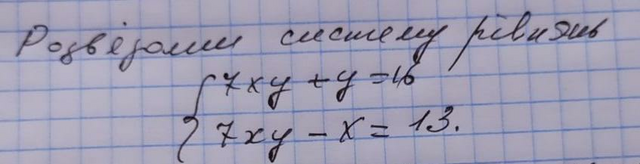 Розвязати систему рівнянь
7xy + y = 16
7xy - x = 13.